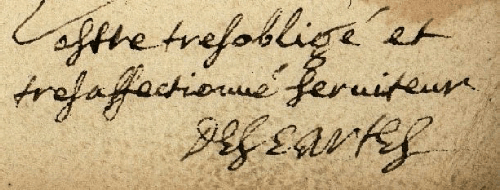 estre tresobligé et
tresaffectionné seruiteur
DESCARTES